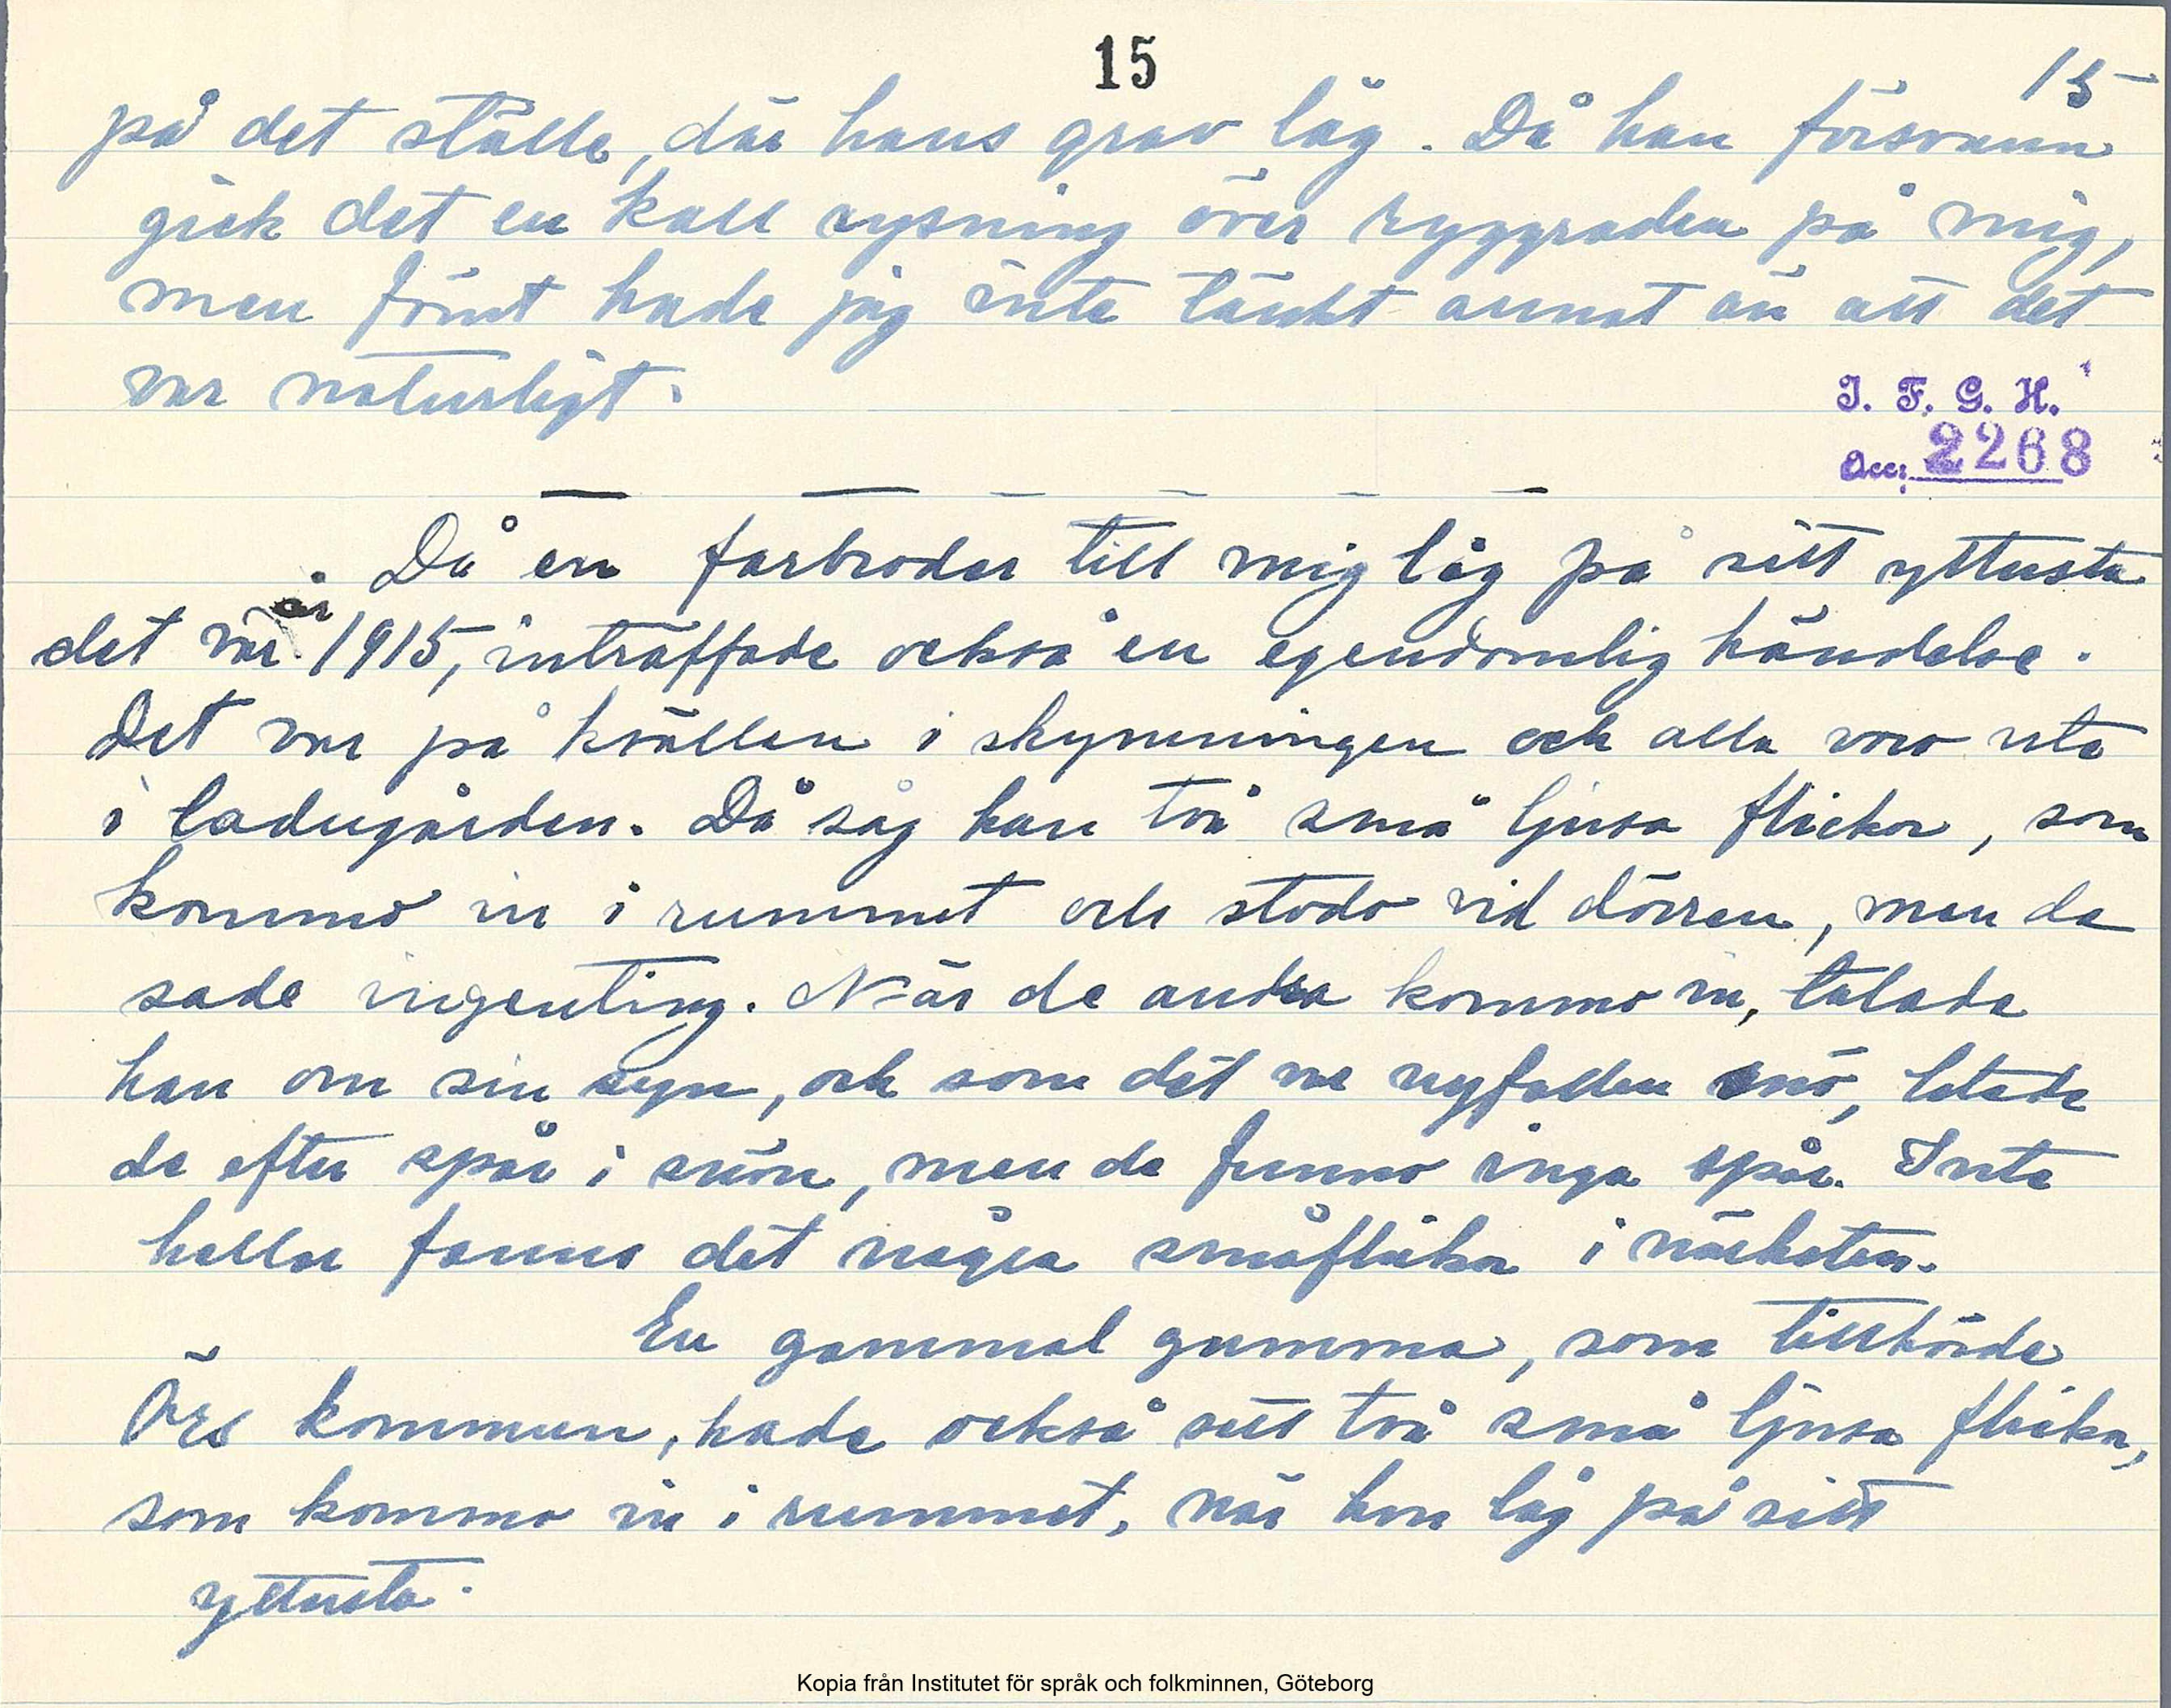 15
15
på det ställe, där hans grav låg. Då han försvann
gick det en kall rysning över ryggraden på mig,
men förut hade jag inte tänkt annat än att det
var naturligt.
I. F. G. H.
Acc: 2268
Då en farbroder till mig låg på sitt yttersta
det var år 1915, inträffade också en egendomlig händelse.
Det var på kvällen i skymningen och alla voro ute
i ladugården. Då såg han två små ljusa flickor, som
kommo in i rummet och stodo vid dörren, men de
sade ingenting. När de andra kommo in, talade
han om sin syn, och som det var nyfallen snö, letade
de efter spår i snön, men de funno inga spår. Inte
heller fanns det några småflickor i närheten.
En gammal gumma, som tillhörde
Örs kommun, hade också sett två små ljusa flickor,
som kommo in i rummet, när hon låg på sitt
yttersta.
Kopia från Institutet för språk och folkminnen, Göteborg